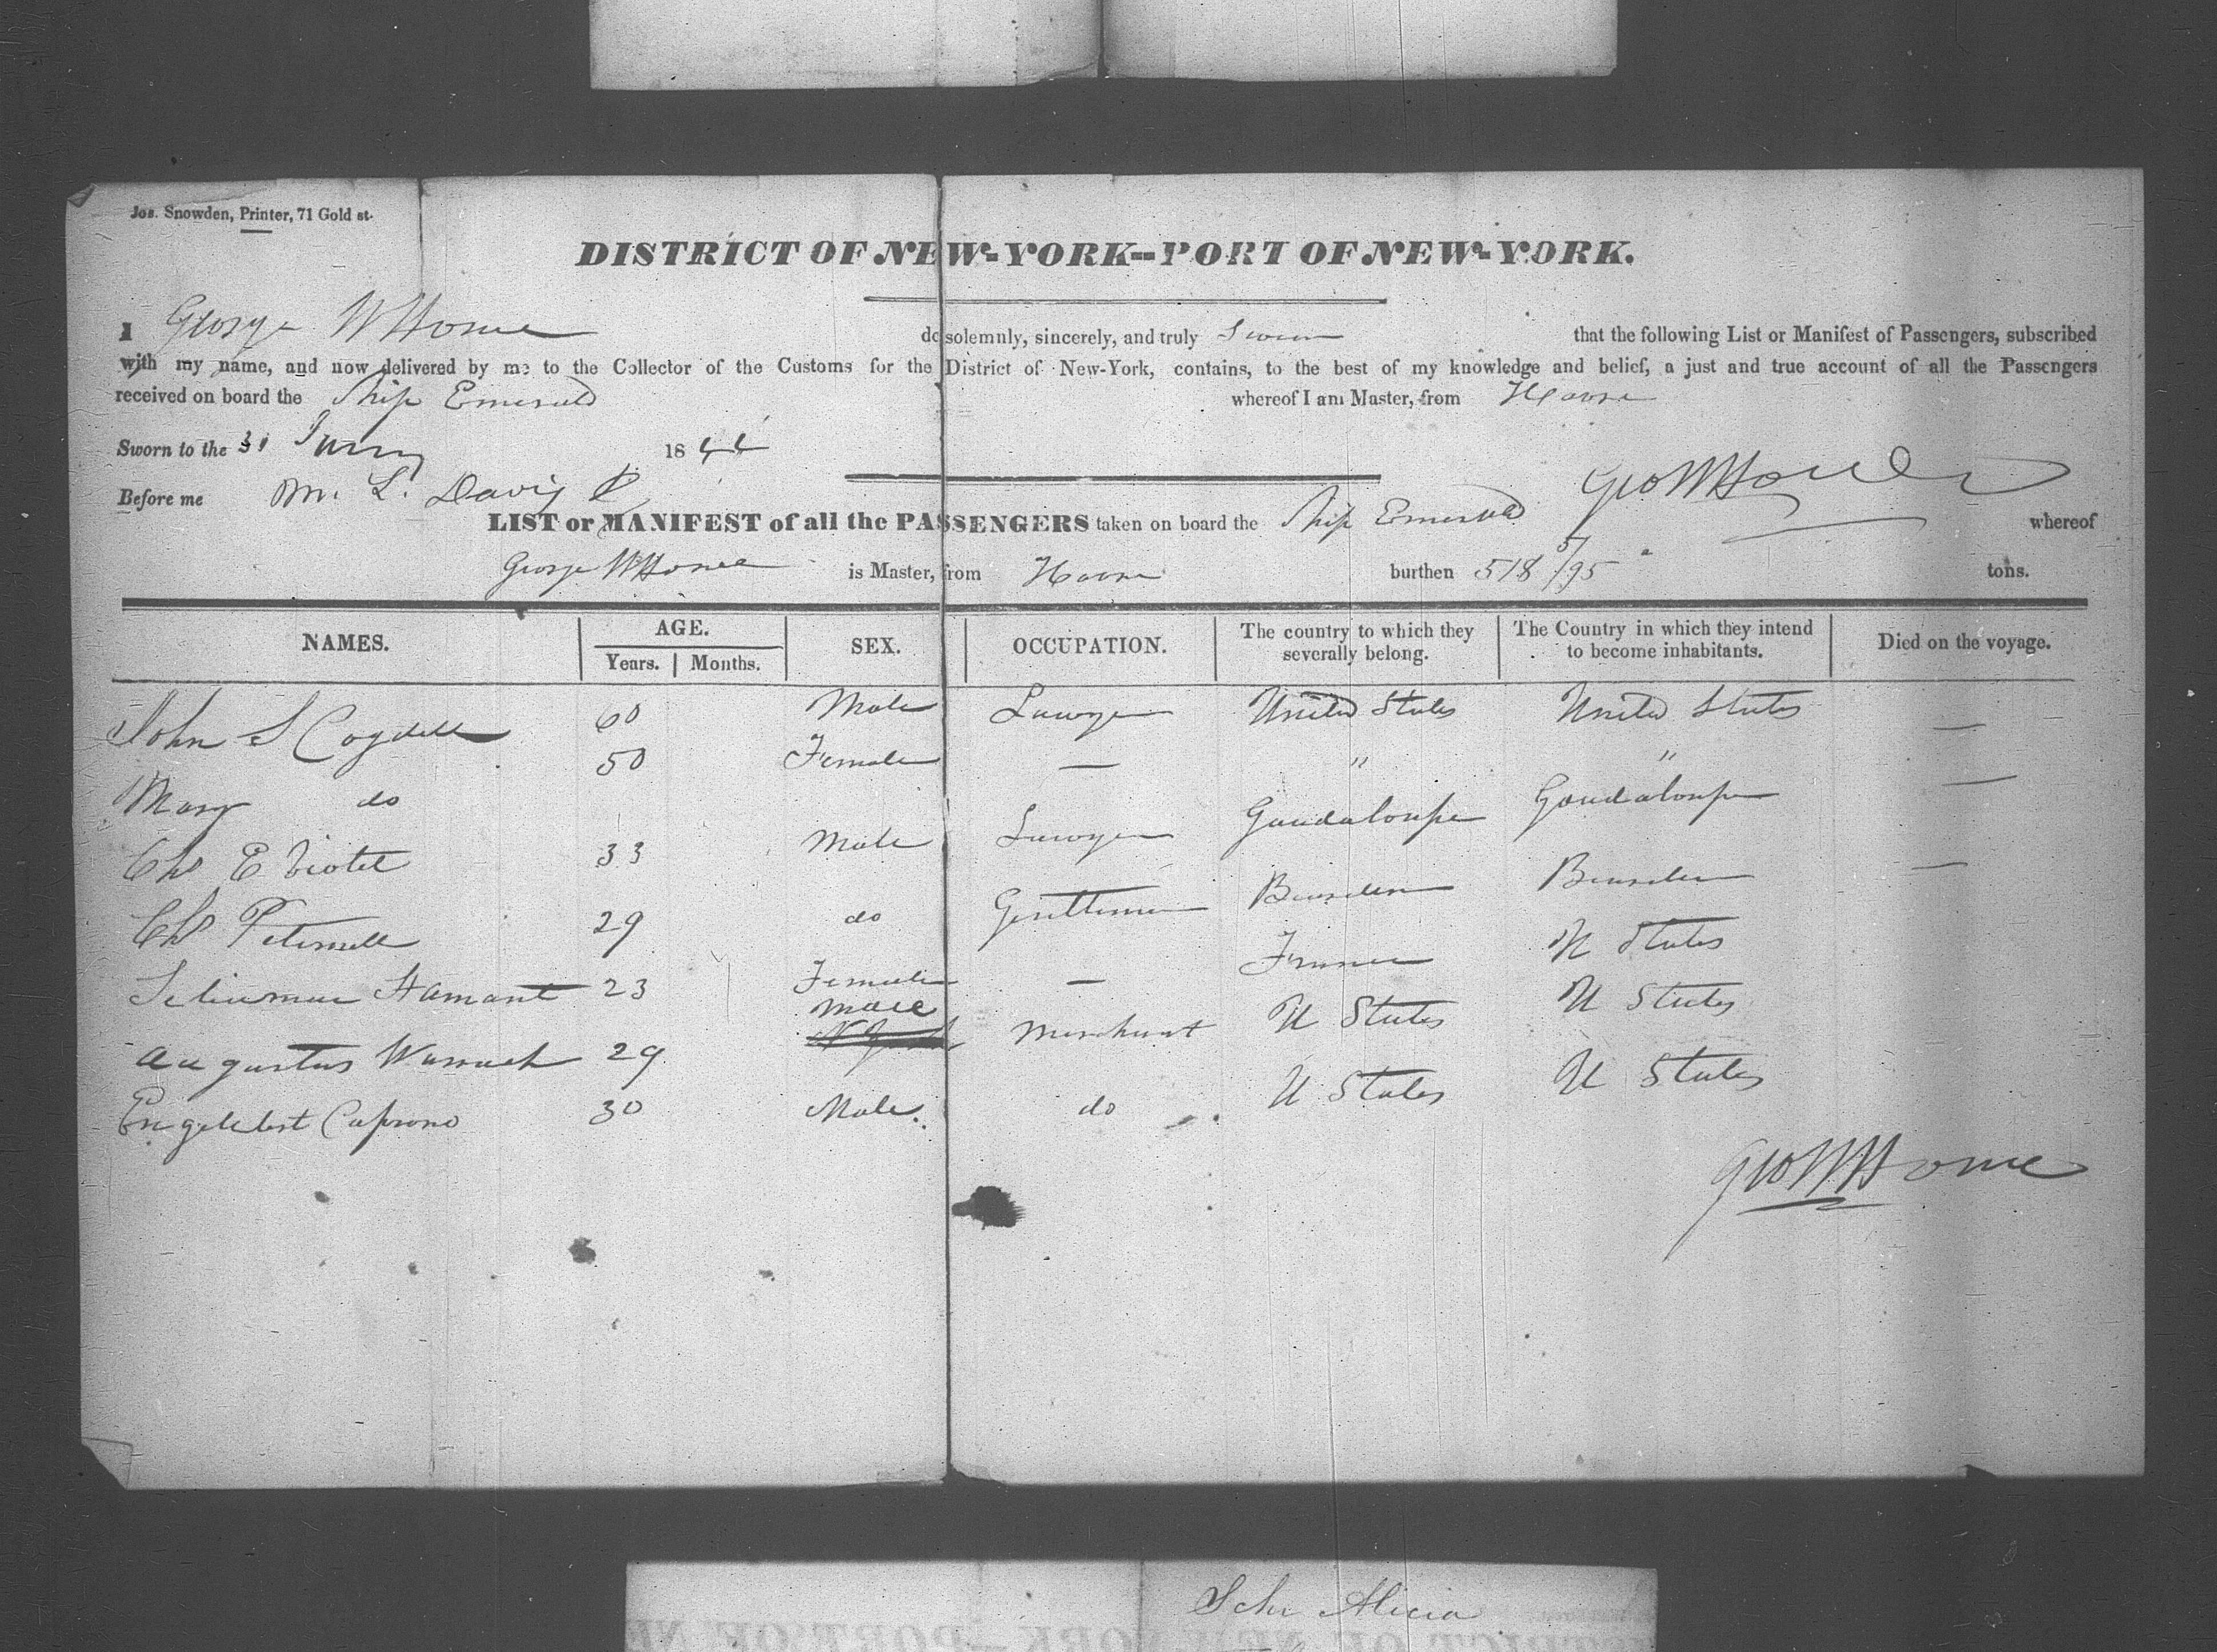 Jos. Snowden, Printer, 71 Gold st.
DISTRICT OF NEW-YORK--PORT OF NEW-YORK.
I George W Howe do solemnly, sincerely, and truly Swear that the following List or Manifest of Passengers, subscribed
with my name, and now delivered by me to the Collector of the Customs for the District of New-York, contains, to the best of my knowledge and belief, a just and true account of all the Passengers
received on board the Ship Emerald whereof I am Master, from Havre
Sworn to the 31 1844
Before me M. L. Davis
Geo W Howe
LIST or MANIFEST of all the PASSENGERS taken on board the Ship Emerald whereof
George W Howe is Master, from Havre burthen 518 5/95 tons.
NAMES. AGE. Years. Months. SEX. OCCUPATION. The country to which they severally belong. The Country in which they intend to become inhabitants. Died on the voyage.
John S Cogdell 60 Male Lawyer United States United States —
Mary do 50 Female — " " —
Chs E 33 Male Lawyer Gaudaloupe Gaudaloupe —
Chs 29 do Gentleman
Hamant 23 Female — France U States
Augustus 29 Male Merchant U States U States
30 Male do U States U States
Geo W Howe
Schr Alicia